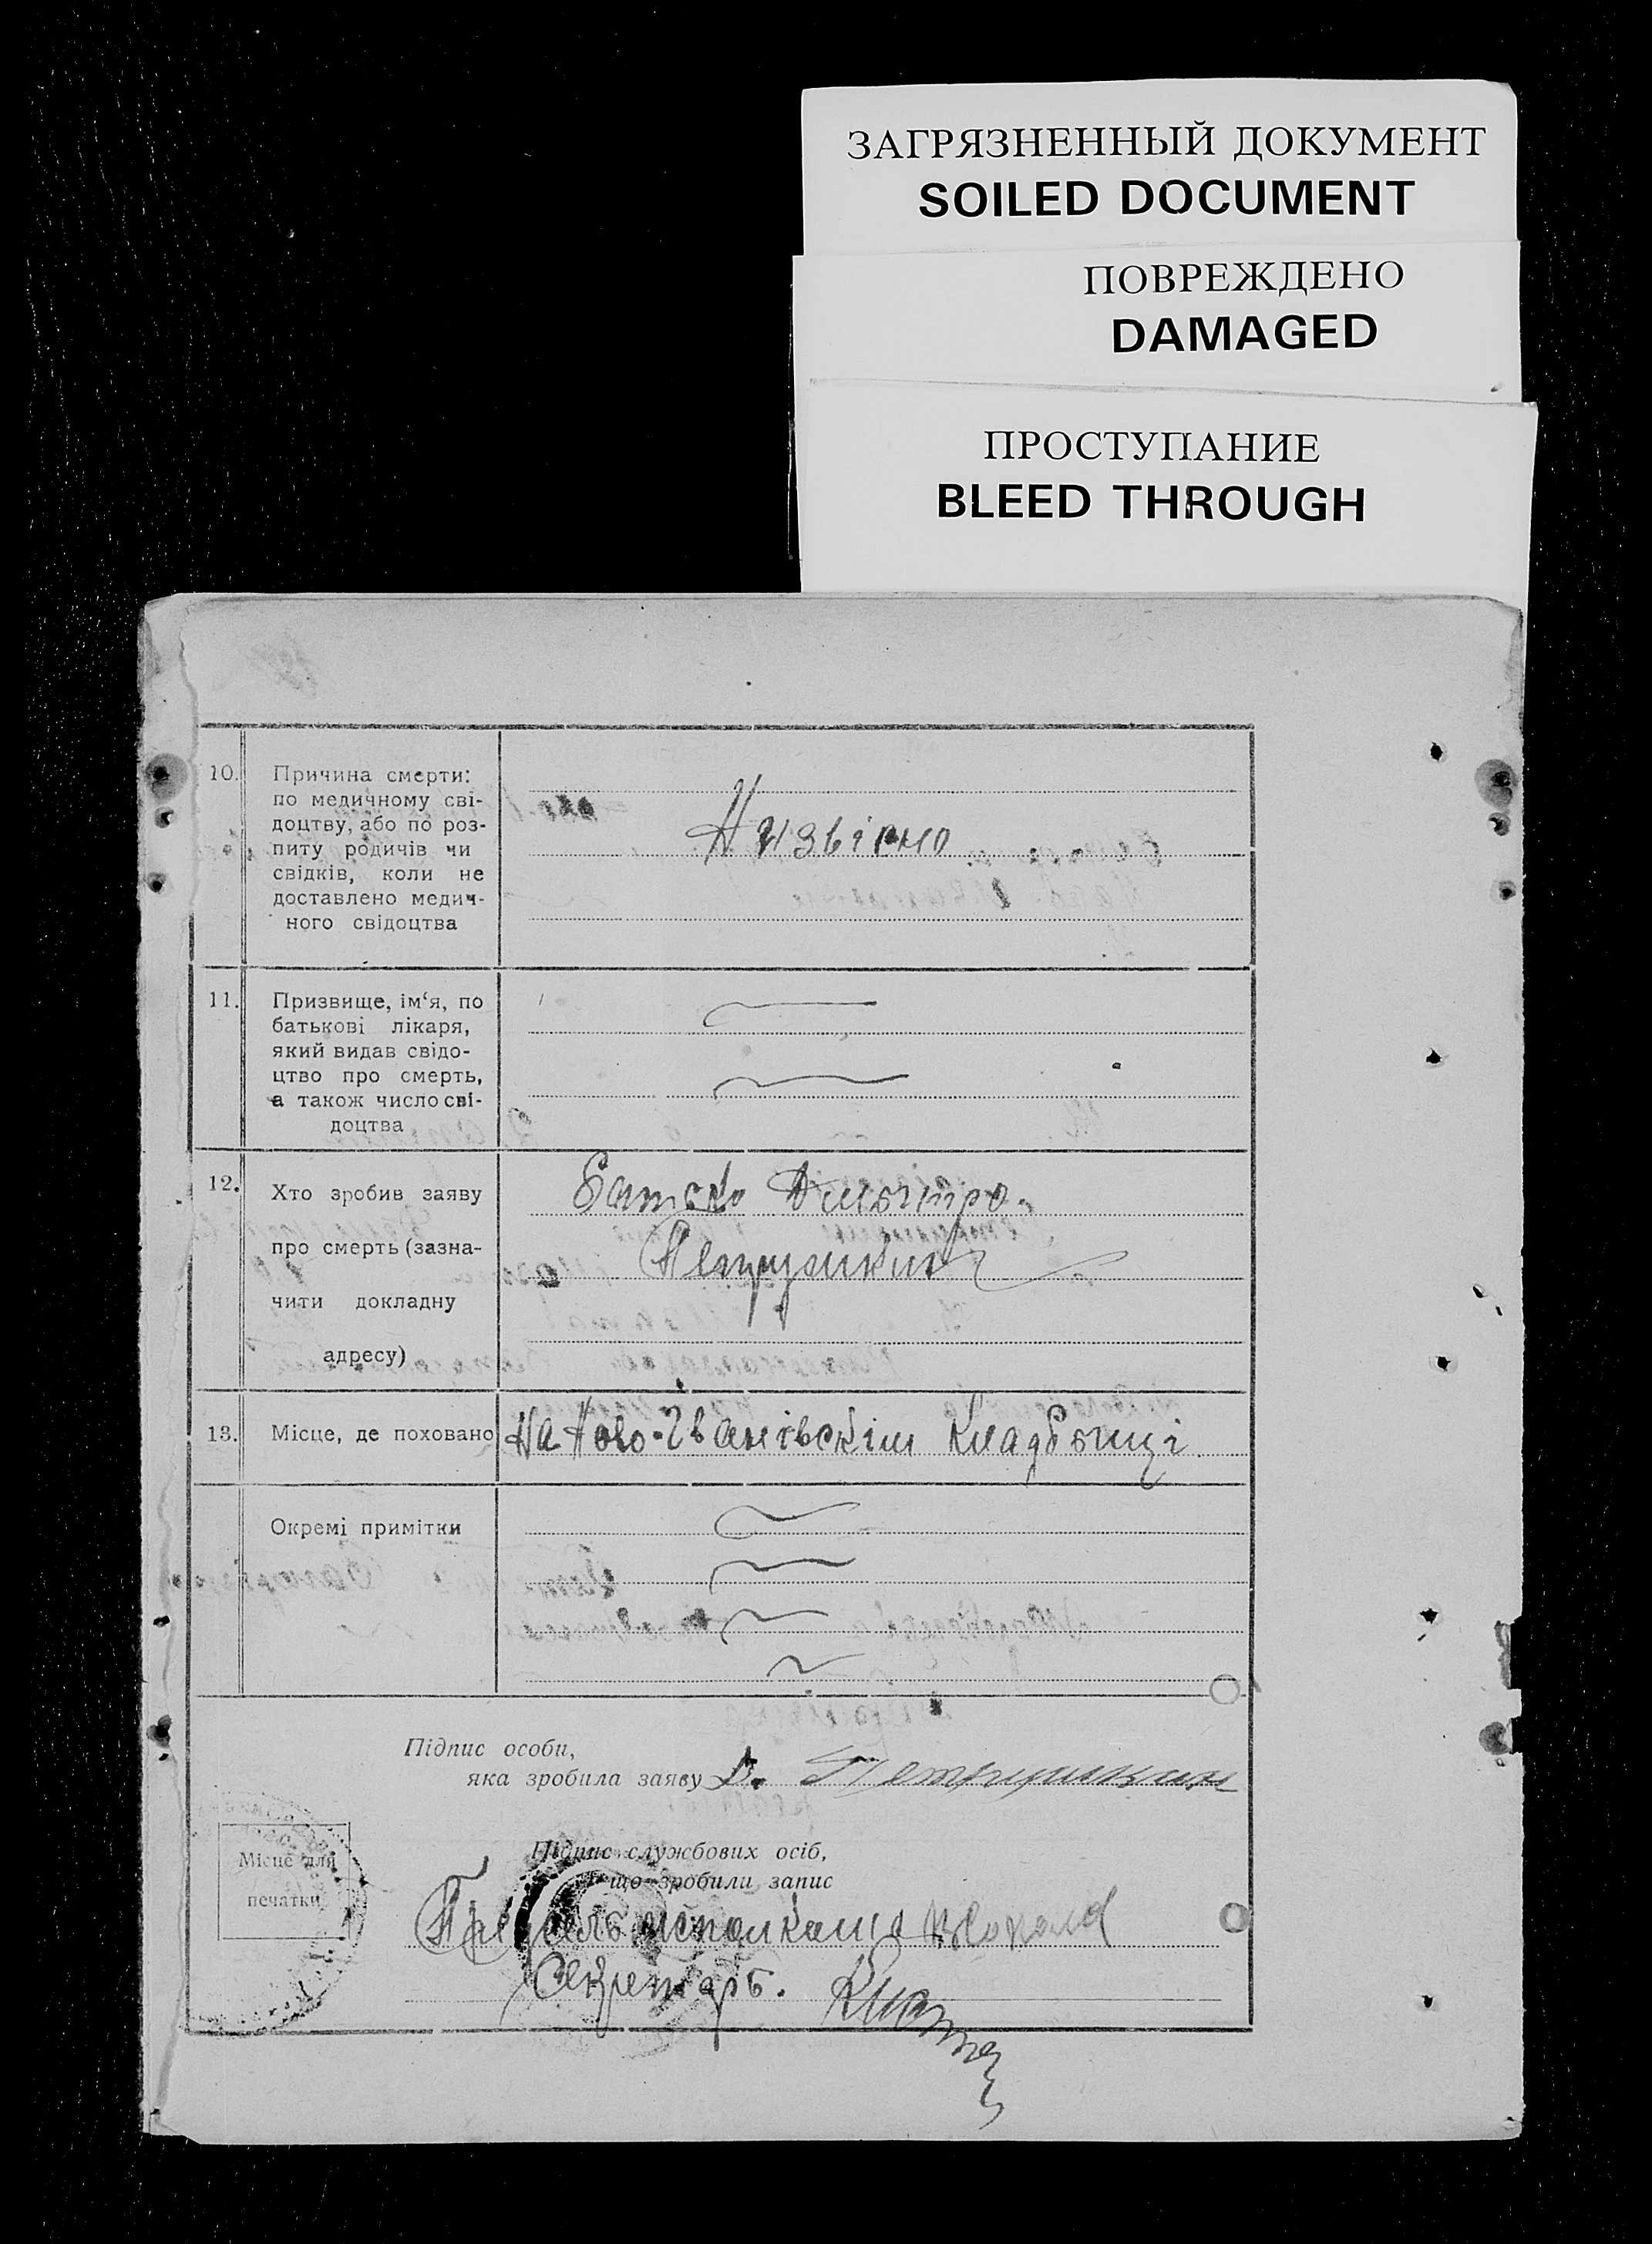 ЗАГРЯЗНЕННЫЙ ДОКУМЕНТ
SOILED DOCUMENT
ПОВРЕЖДЕНО
DAMAGED
ПРОСТУПАНИЕ
BLEED THROUGH
10.
Причина смерти:
по медичному сві-
доцтву, або по роз-
питу родичів чи
свідків, коли не
доставлено медич-
ного свідоцтва
11.
Призвище, ім‘я, по
батькові лікаря,
який видав свідо-
цтво про смерть,
а також число сві-
доцтва
12.
Хто зробив заяву
про смерть (зазна-
чити докладну
адресу)
Батько Дмытро
Петрушкин
13.
Місце, де поховано
На Ново-Іванівскім Кладбыщі
Окремі примітки
Підпис особи,
яка зробила заяву Д. Петрушкин
Місце для
печатки
Підпис службових осіб,
що зробили запис
исполкома
Секретарь.